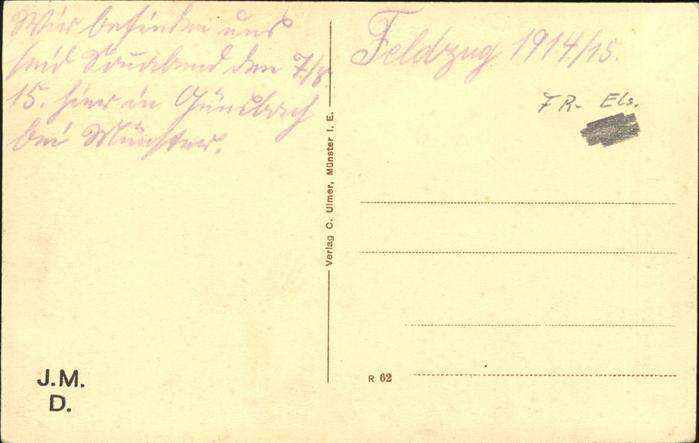 Wir befinden uns
seid Sonnabend den 7/8
15. hier in Günsbach
bei Münster.
Feldzug 1914/15.
FR- Els.
Verlag C. Ulmer, Münster I. E.
R 62
J.M.
D.